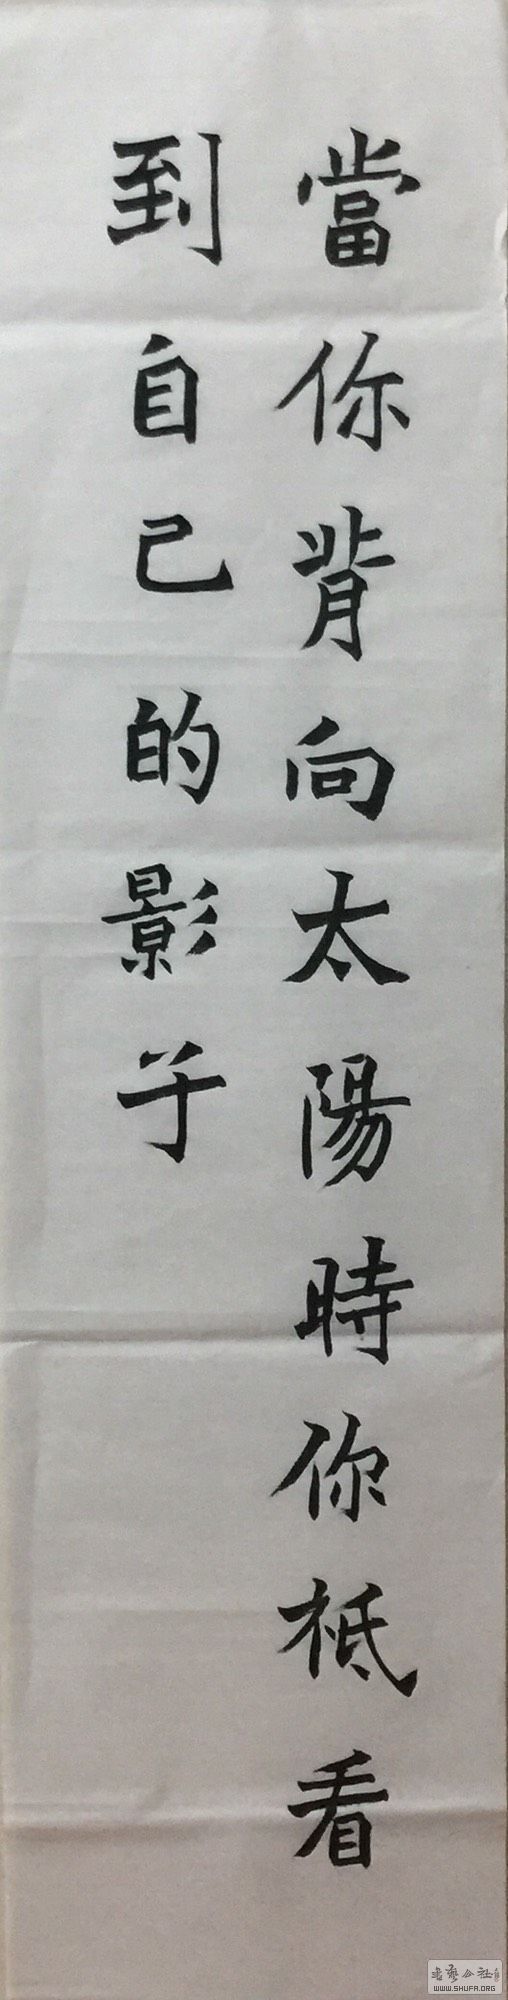 當你背向太陽時你祗看
到自己的影子
書藝公社
WWW.SHUFA.ORG